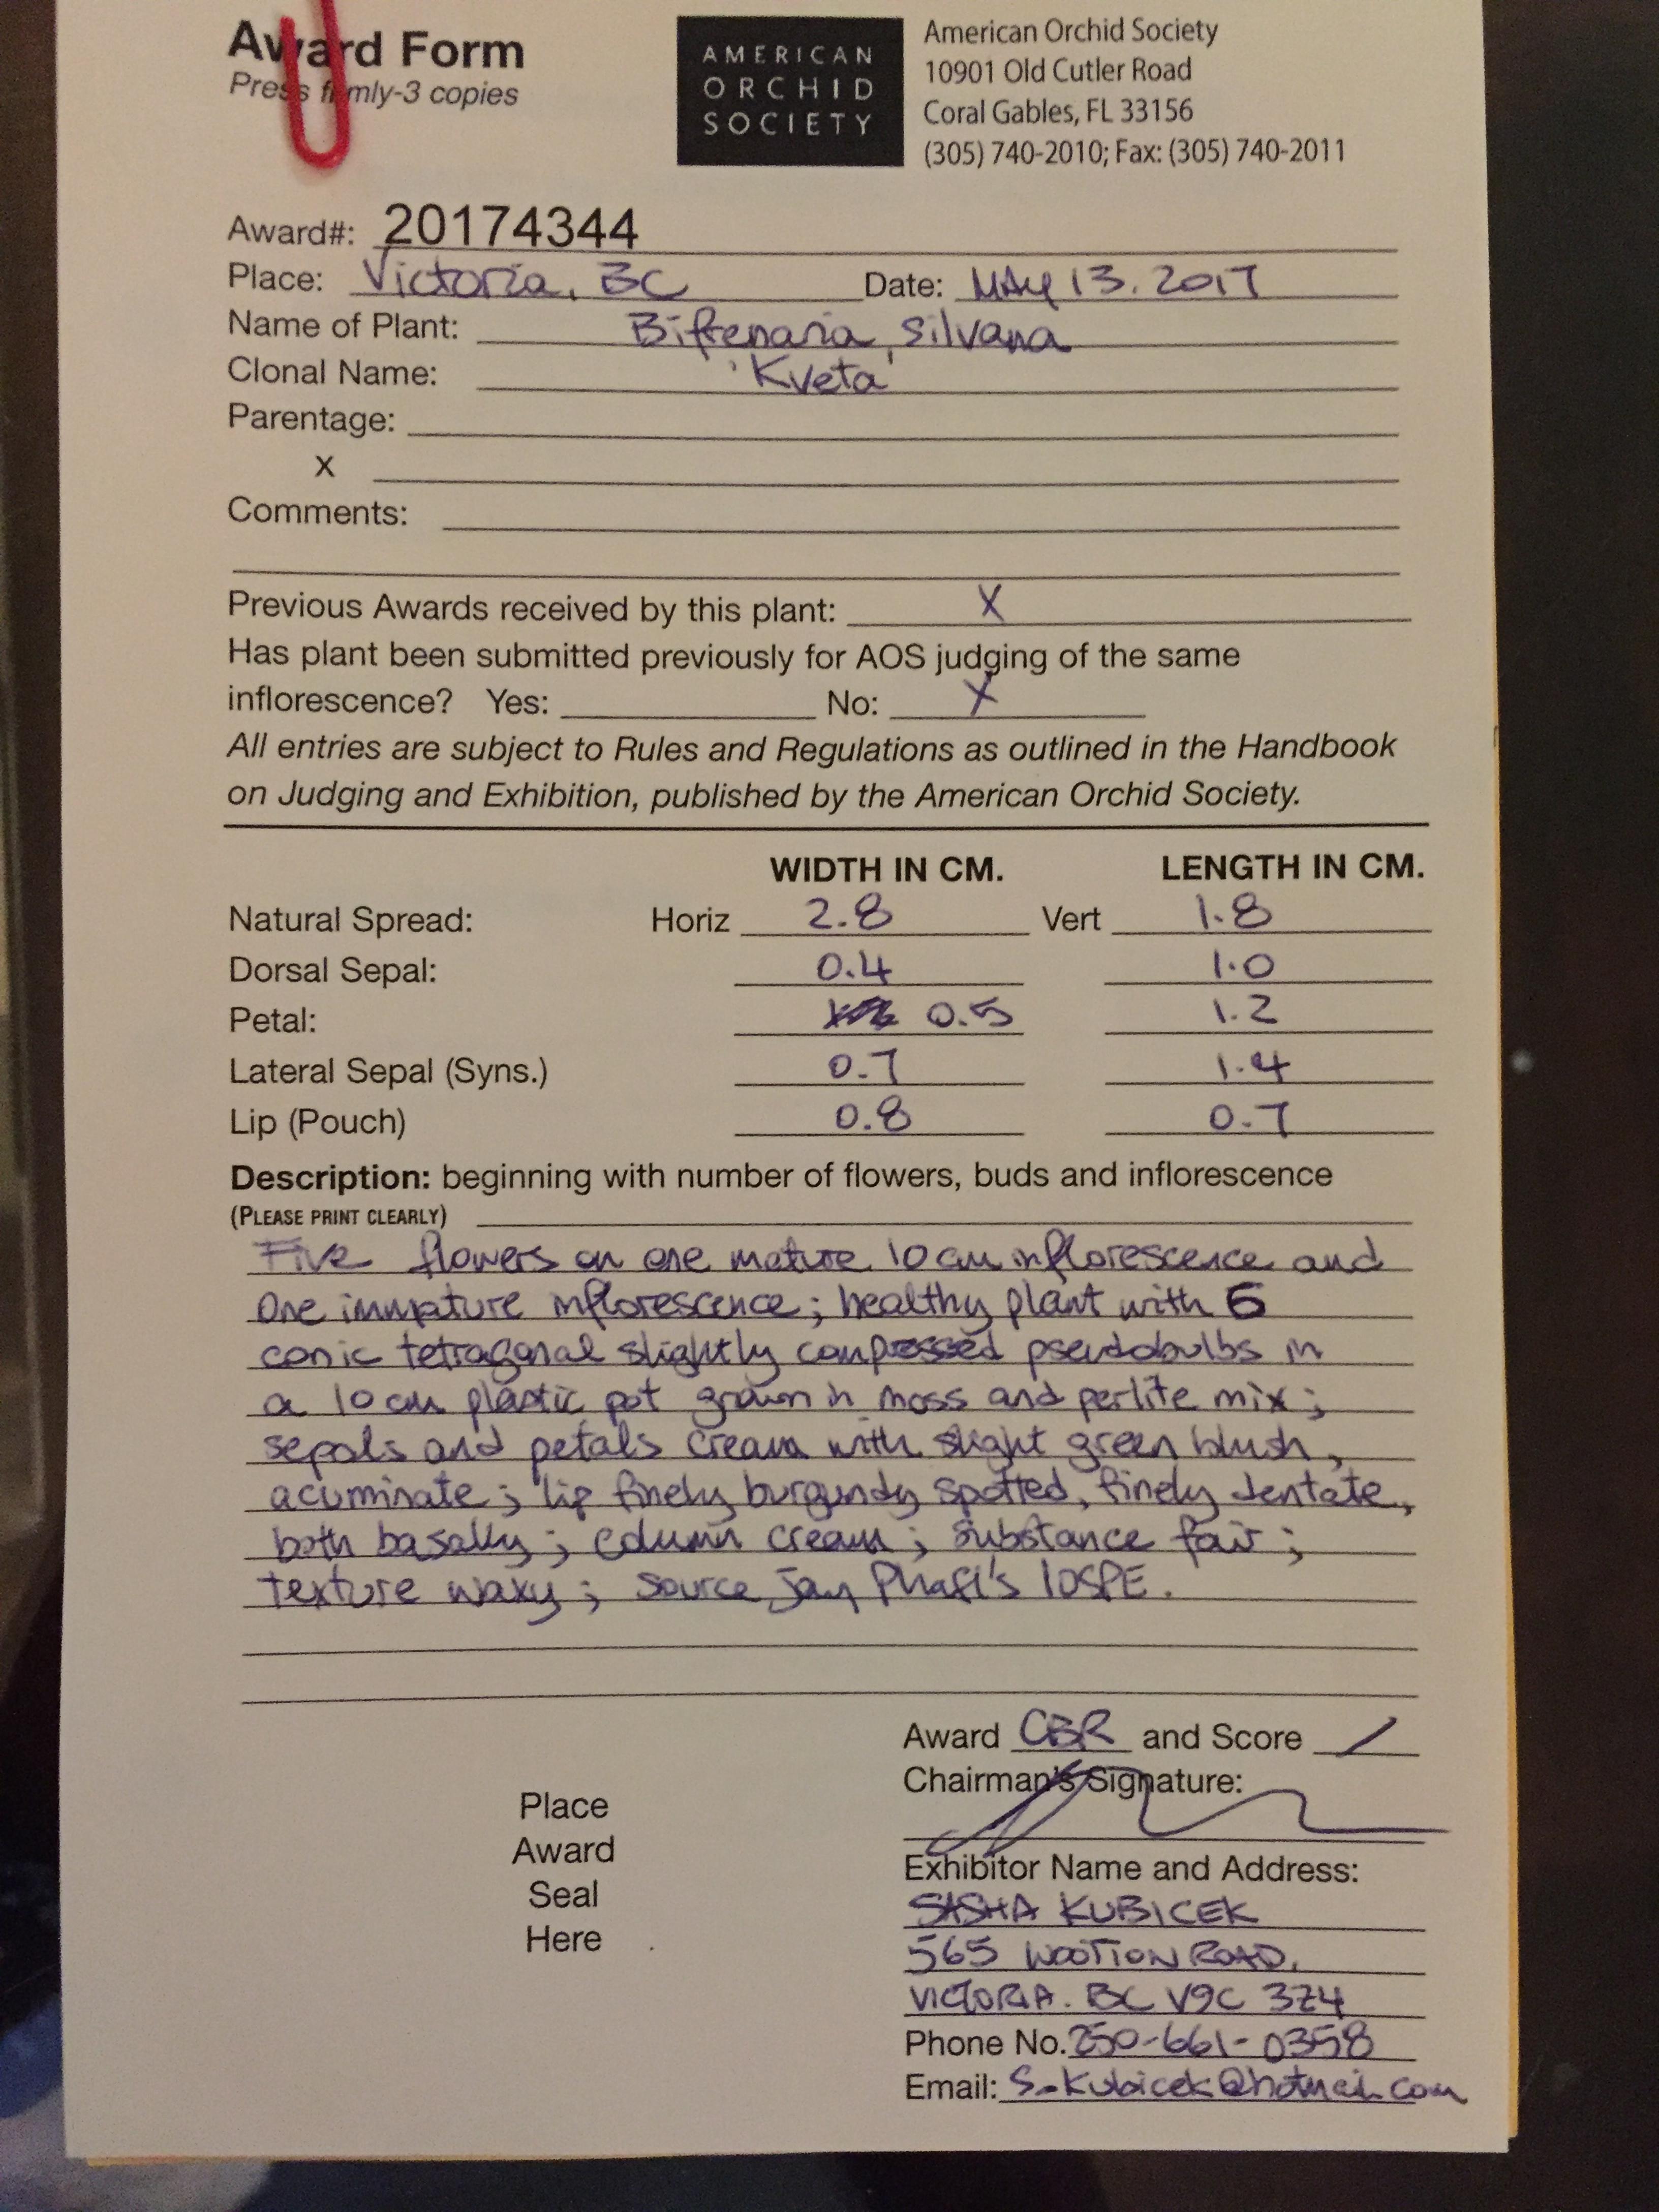 Award Form
Press firmly-3 copies
AMERICAN
ORCHID
SOCIETY
American Orchid Society
10901 Old Cutler Road
Coral Gables, FL 33156
(305) 740-2010; Fax: (305) 740-2011
Award#: 20174344
Place: Victoria, BC Date: MAY 13. 2017
Name of Plant: Bifrenaria silvana
Clonal Name: 'Kveta'
Parentage:
x
Comments:
Previous Awards received by this plant: X
Has plant been submitted previously for AOS judging of the same
inflorescence? Yes: No: X
All entries are subject to Rules and Regulations as outlined in the Handbook
on Judging and Exhibition, published by the American Orchid Society.
WIDTH IN CM. LENGTH IN CM.
Natural Spread: Horiz 2.8 Vert 1.8
Dorsal Sepal: 0.4 1.0
Petal: 0.5 1.2
Lateral Sepal (Syns.) 0.7 1.4
Lip (Pouch) 0.8 0.7
Description: beginning with number of flowers, buds and inflorescence
(PLEASE PRINT CLEARLY)
Five flowers on one mature 10 cm inflorescence and
one immature inflorescence; healthy plant with 6
conic tetragonal slightly compressed pseudobulbs in
a 10 cm plastic pot grown in moss and perlite mix;
sepals and petals cream with slight green blush,
acuminate; lip finely burgundy spotted, finely dentate,
both basally; column cream; substance fair;
texture waxy; source Jay Phafl's IOSPE.
Award CBR and Score /
Chairman's Signature:
Place
Award
Seal
Here
Exhibitor Name and Address:
SASHA KUBICEK
565 WOOTTON ROAD,
VICTORIA. BC V9C 3Z4
Phone No. 250-661-0358
Email: S-Kubicek@hotmail.com